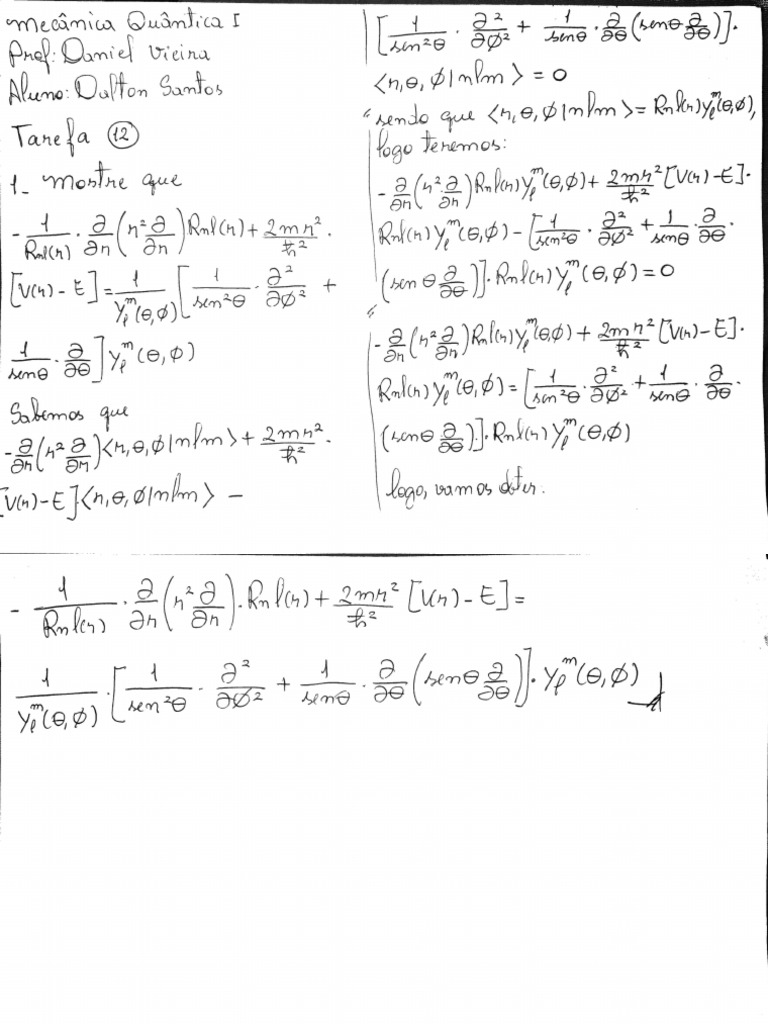 Mecânica Quântica I
Prof: Daniel Vieira
Aluno: Dalton Santos
Tarefa 12
1- Mostre que
-1/Rnl(r) · ∂/∂r (r² ∂/∂r) Rnl(r) + 2mr²/ħ² ·
[V(r) - E] = 1/Yₗᵐ(θ,φ) [1/sen²θ · ∂²/∂φ² +
1/senθ · ∂/∂θ] Yₗᵐ(θ,φ)
Sabemos que
-∂/∂r (r² ∂/∂r) <r,θ,φ|nlm> + 2mr²/ħ² ·
[V(r) - E]·<r,θ,φ|nlm> -
[1/sen²θ · ∂²/∂φ² + 1/senθ · ∂/∂θ (senθ ∂/∂θ)]·
<r,θ,φ|nlm> = 0
" sendo que <r,θ,φ|nlm> = Rnl(r)Yₗᵐ(θ,φ),
logo teremos:
-∂/∂r (r² ∂/∂r) Rnl(r)Yₗᵐ(θ,φ) + 2mr²/ħ² [V(r) - E]·
Rnl(r)Yₗᵐ(θ,φ) - [1/sen²θ · ∂²/∂φ² + 1/senθ · ∂/∂θ ·
(senθ ∂/∂θ)]·Rnl(r)Yₗᵐ(θ,φ) = 0
"
-∂/∂r (r² ∂/∂r) Rnl(r)Yₗᵐ(θ,φ) + 2mr²/ħ² [V(r) - E]·
Rnl(r)Yₗᵐ(θ,φ) = [1/sen²θ · ∂²/∂φ² + 1/senθ · ∂/∂θ ·
(senθ ∂/∂θ)]·Rnl(r)Yₗᵐ(θ,φ)
logo, vamos obter.
-1/Rnl(r) · ∂/∂r (r² ∂/∂r)·Rnl(r) + 2mr²/ħ² [V(r) - E] =
1/Yₗᵐ(θ,φ) · [1/sen²θ · ∂²/∂φ² + 1/senθ · ∂/∂θ (senθ ∂/∂θ)]·Yₗᵐ(θ,φ)